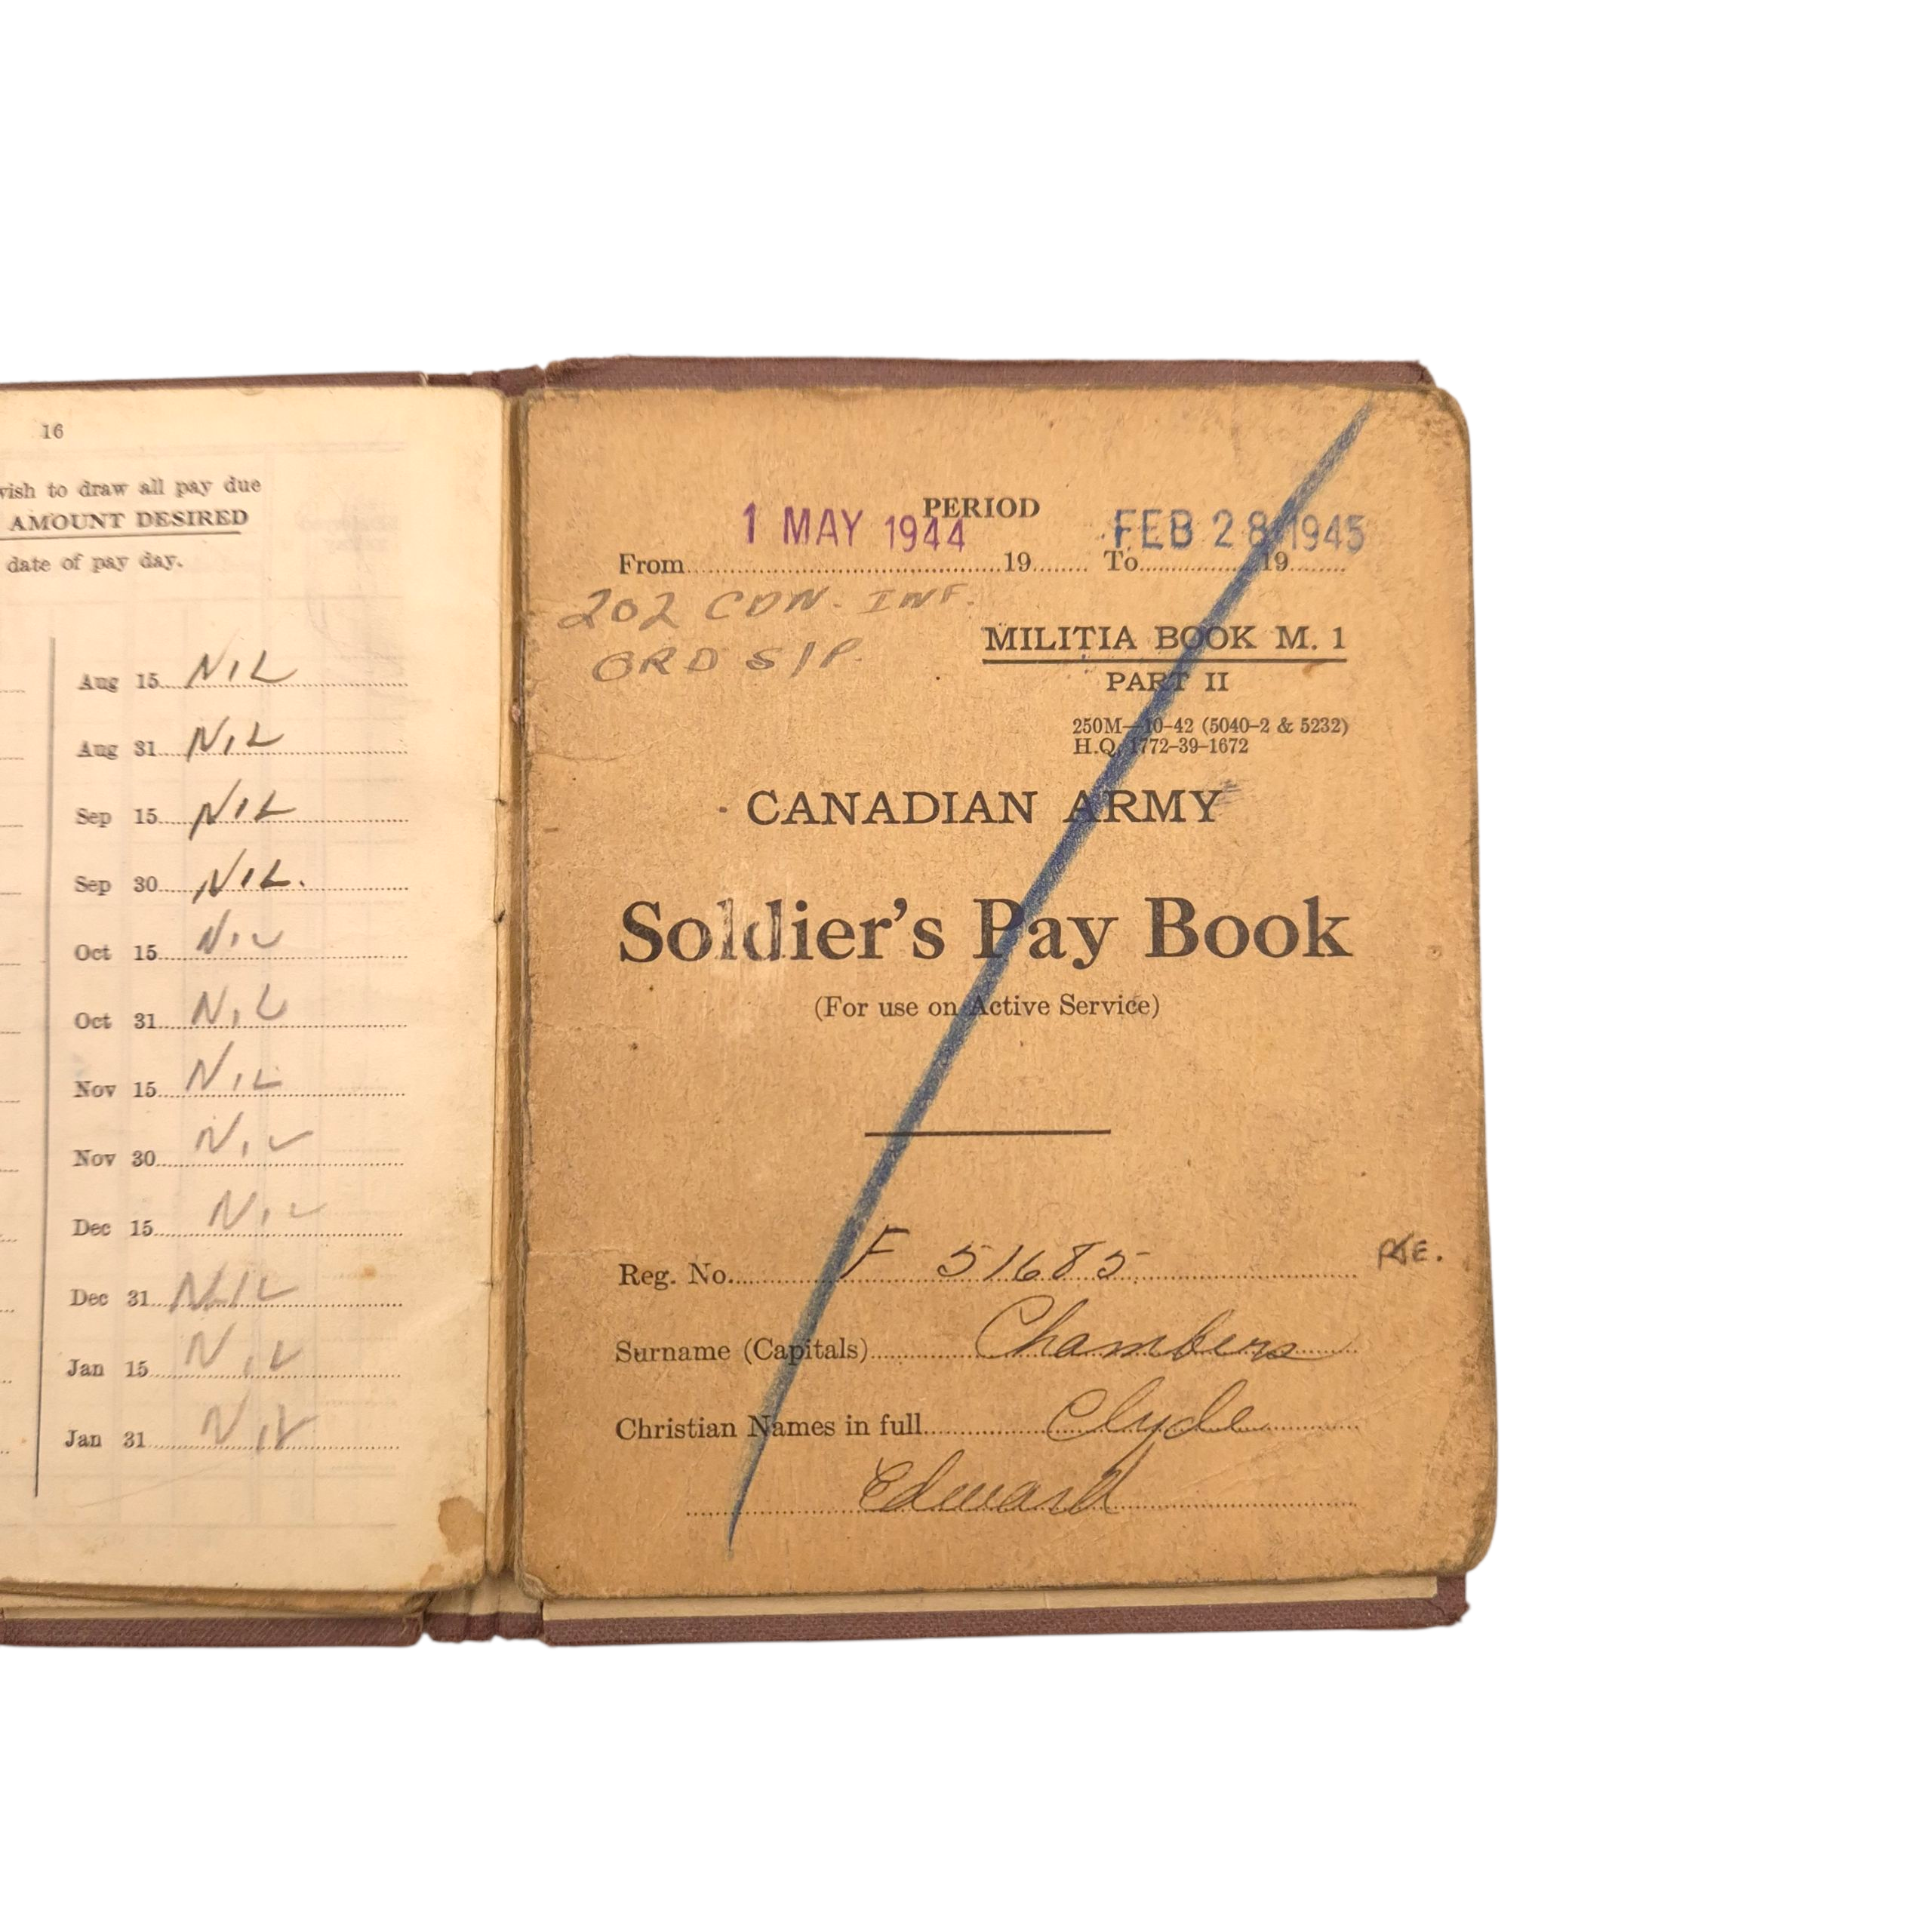 16
wish to draw all pay due
AMOUNT DESIRED
date of pay day.
Aug 15 NIL
Aug 31 NIL
Sep 15 NIL
Sep 30 NIL.
Oct 15 NIL
Oct 31 NIL
Nov 15 NIL
Nov 30 NIL
Dec 15 NIL
Dec 31 NIL
Jan 15 NIL
Jan 31 NIL
PERIOD
1 MAY 1944 FEB 28 1945
From 19 To 19
202 CDN. INF.
ORD S/P.
MILITIA BOOK M. 1
PART II
250M—10-42 (5040-2 & 5232)
H.Q. 1772-39-1672
CANADIAN ARMY
Soldier's Pay Book
(For use on Active Service)
Reg. No. F 51685
Surname (Capitals) Chambers
Christian Names in full Clyde
Edward